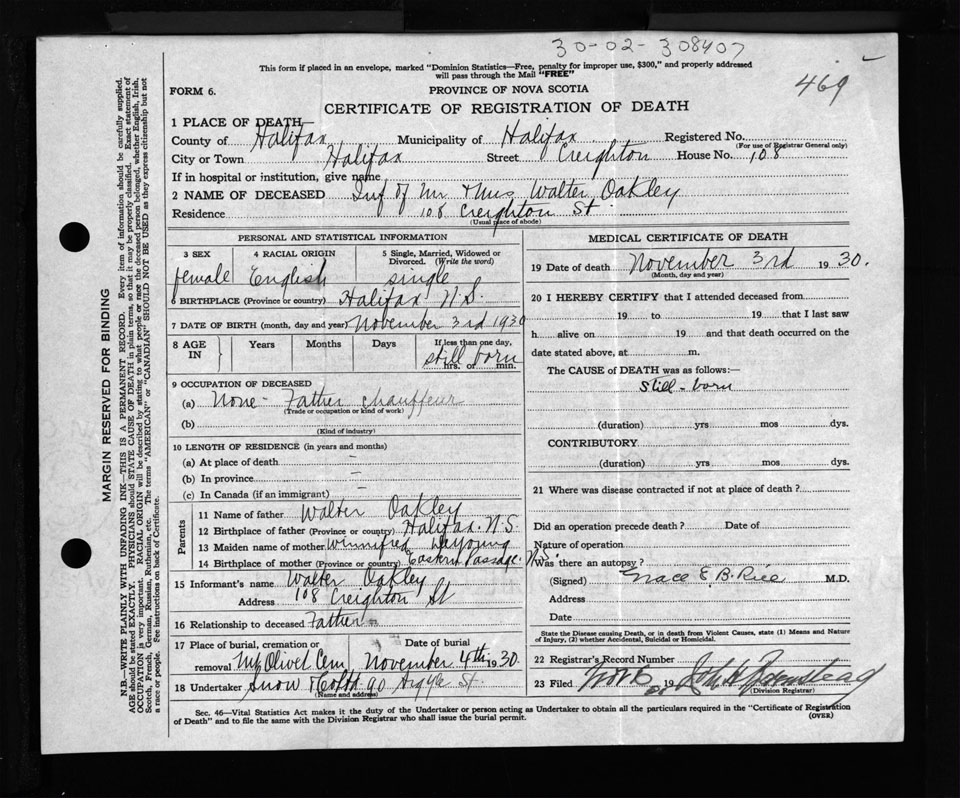 30-02-308407
469
This form if placed in an envelope, marked "Dominion Statistics—Free, penalty for improper use, $300," and properly addressed
will pass through the Mail "FREE"
FORM 6. PROVINCE OF NOVA SCOTIA
CERTIFICATE OF REGISTRATION OF DEATH
1 PLACE OF DEATH
County of Halifax Municipality of Halifax Registered No.
(For use of Registrar General only)
City or Town Halifax Street Creighton House No. 108
If in hospital or institution, give name
2 NAME OF DECEASED Inf of Mr & Mrs Walter Oakley
Residence 108 Creighton St
(Usual place of abode)
PERSONAL AND STATISTICAL INFORMATION
3 SEX 4 RACIAL ORIGIN 5 Single, Married, Widowed or
Divorced. (Write the word)
female English single
6 BIRTHPLACE (Province or country) Halifax N.S.
7 DATE OF BIRTH (month, day and year) November 3rd 1930
8 AGE IN Years Months Days If less than one day,
still born
hrs. or min.
9 OCCUPATION OF DECEASED
(a) None - Father chauffeur
(Trade or occupation or kind of work)
(b)
(Kind of industry)
10 LENGTH OF RESIDENCE (in years and months)
(a) At place of death —
(b) In province —
(c) In Canada (if an immigrant) —
Parents
11 Name of father Walter Oakley
12 Birthplace of father (Province or country) Halifax N.S.
13 Maiden name of mother Winnifred
14 Birthplace of mother (Province or country) Eastern Passage N.S.
15 Informant's name Walter Oakley
Address 108 Creighton St
16 Relationship to deceased Father
17 Place of burial, cremation or Date of burial
removal Mt Olivet Cem November 4th 1930
18 Undertaker Snow & Co Ltd 90 Argyle St.
(Name and address)
MEDICAL CERTIFICATE OF DEATH
19 Date of death November 3rd 1930.
(Month, day and year)
20 I HEREBY CERTIFY that I attended deceased from
19 to 19 that I last saw
h alive on 19 and that death occurred on the
date stated above, at m.
The CAUSE of DEATH was as follows:—
Still-born
(duration) yrs mos dys.
CONTRIBUTORY
(duration) yrs mos dys.
21 Where was disease contracted if not at place of death?
Did an operation precede death? Date of
Nature of operation
Was there an autopsy?
(Signed) Grace E. B. Rice M.D.
Address
Date
State the Disease causing Death, or in death from Violent Causes, state (1) Means and Nature
of Injury, (2) whether Accidental, Suicidal or Homicidal.
22 Registrar's Record Number
23 Filed 19
(Division Registrar)
Sec. 46—Vital Statistics Act makes it the duty of the Undertaker or person acting as Undertaker to obtain all the particulars required in the "Certificate of Registration
of Death" and to file the same with the Division Registrar who shall issue the burial permit.
(OVER)
MARGIN RESERVED FOR BINDING
N.B.—WRITE PLAINLY WITH UNFADING INK—THIS IS A PERMANENT RECORD. Every item of information should be carefully supplied.
AGE should be stated EXACTLY. PHYSICIANS should STATE CAUSE OF DEATH in plain terms, so that it may be properly classified. Exact statement of
OCCUPATION is very important. RACIAL ORIGIN will be described by stating to what people or race the deceased person belonged, whether English, Irish,
Scotch, French, German, Russian, Ruthenian, etc. The terms "AMERICAN" or "CANADIAN" SHOULD NOT BE USED as they express citizenship but not
a race or people. See instructions on back of Certificate.